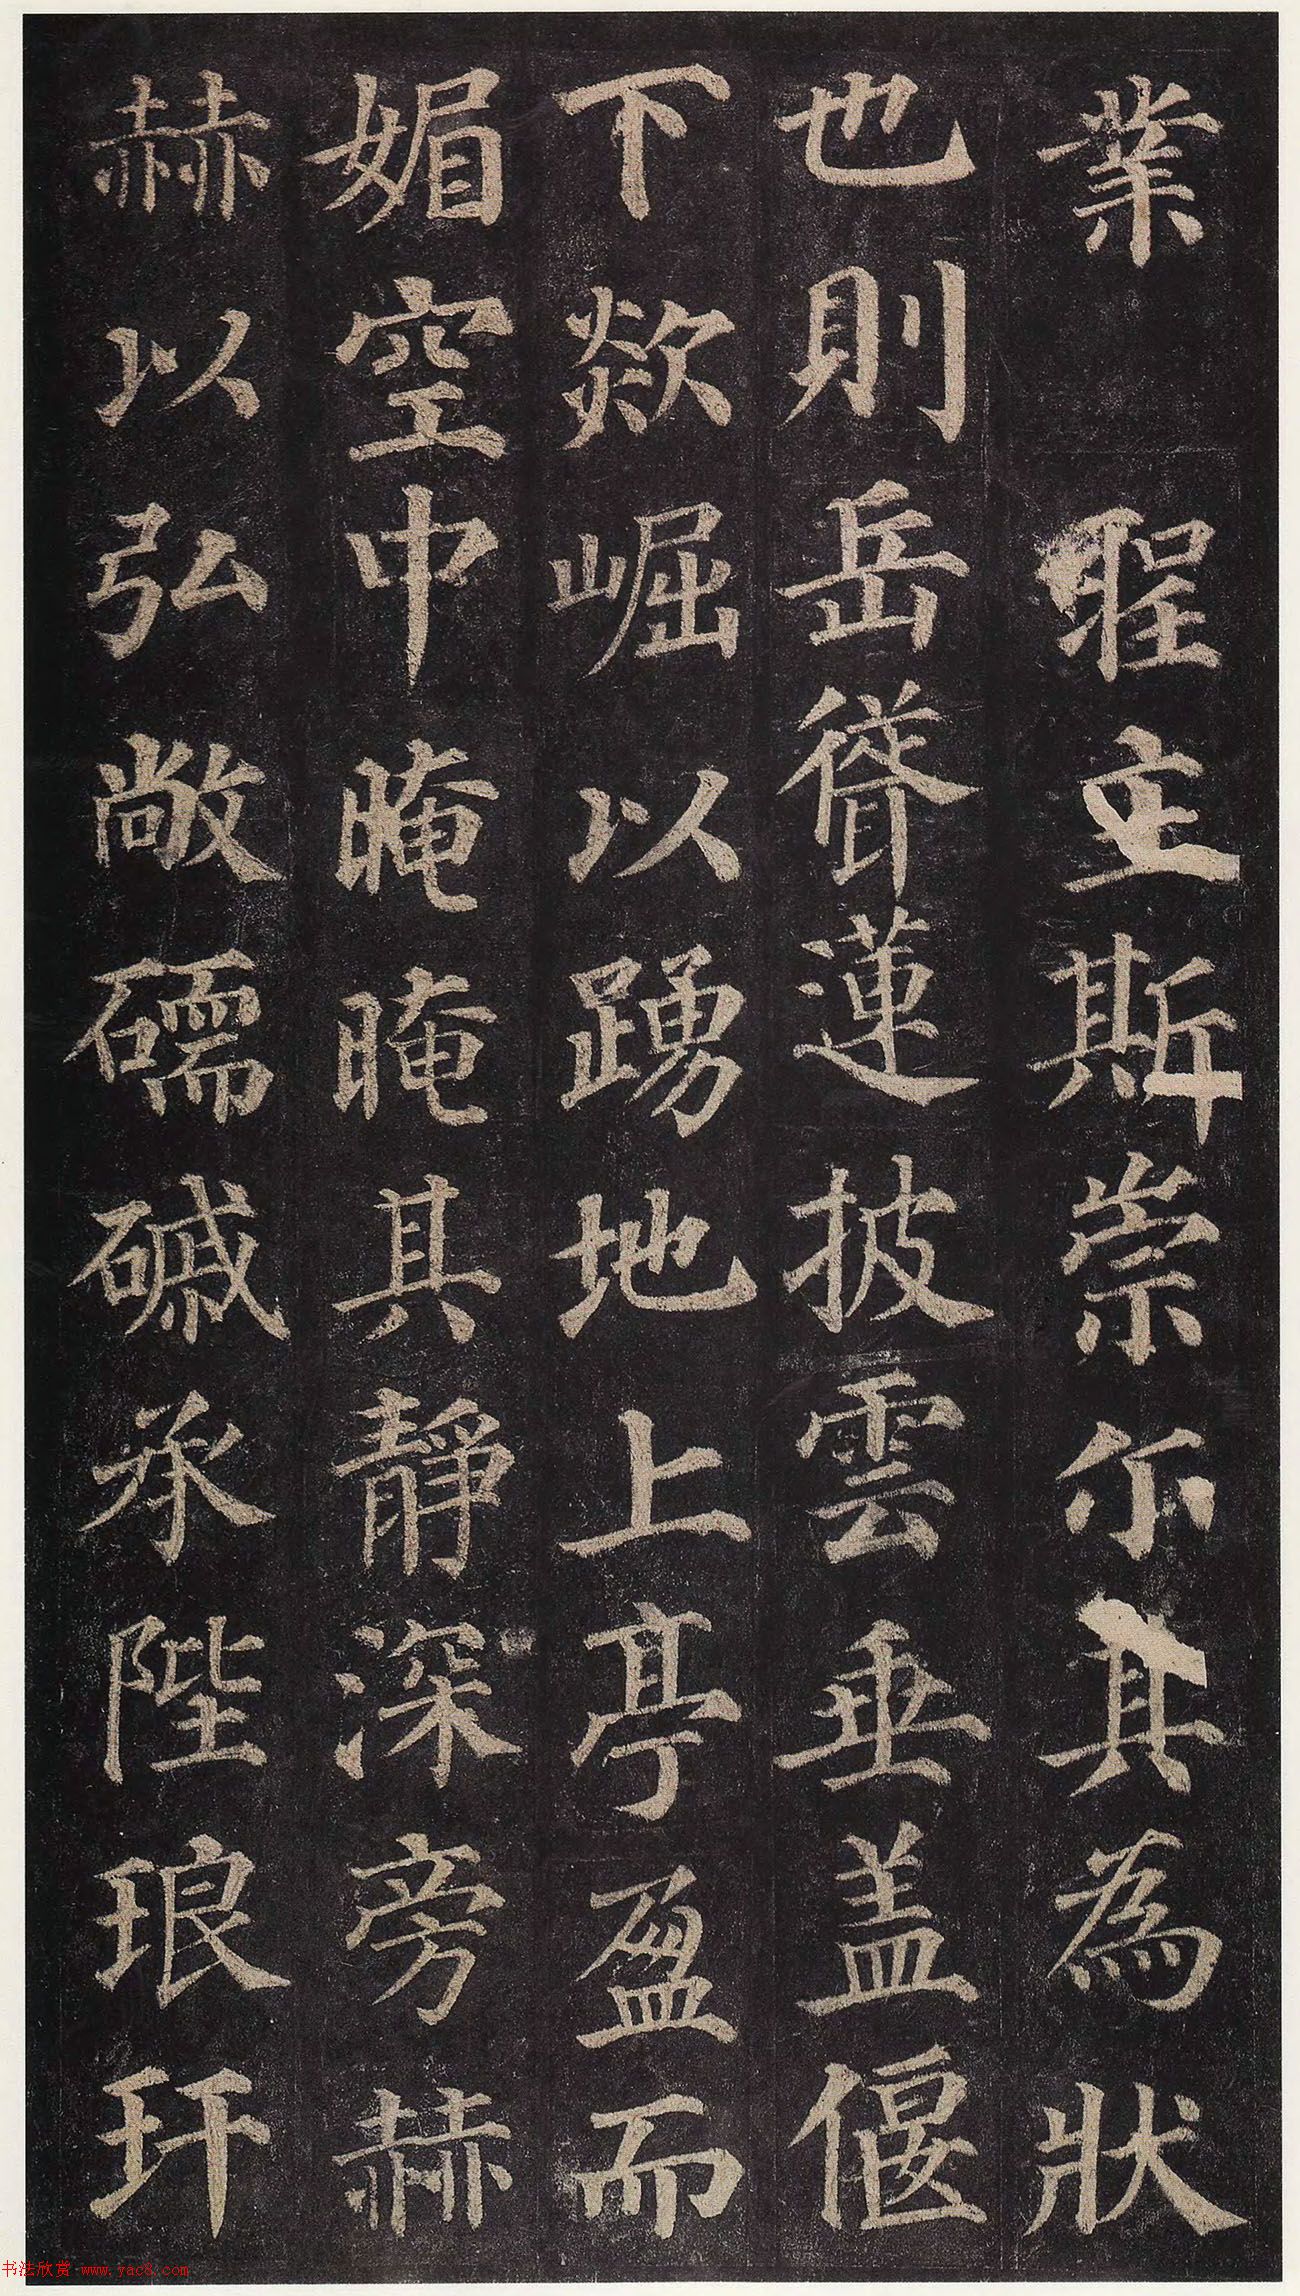 業 程立斯崇尒其為狀
也則岳聳蓮披雲垂盖偃
下欻崛以踴地上亭盈而
媚空中晻晻其靜深旁赫
赫以弘敞礝磩承陛琅玕
书法欣赏 www.yac8.com